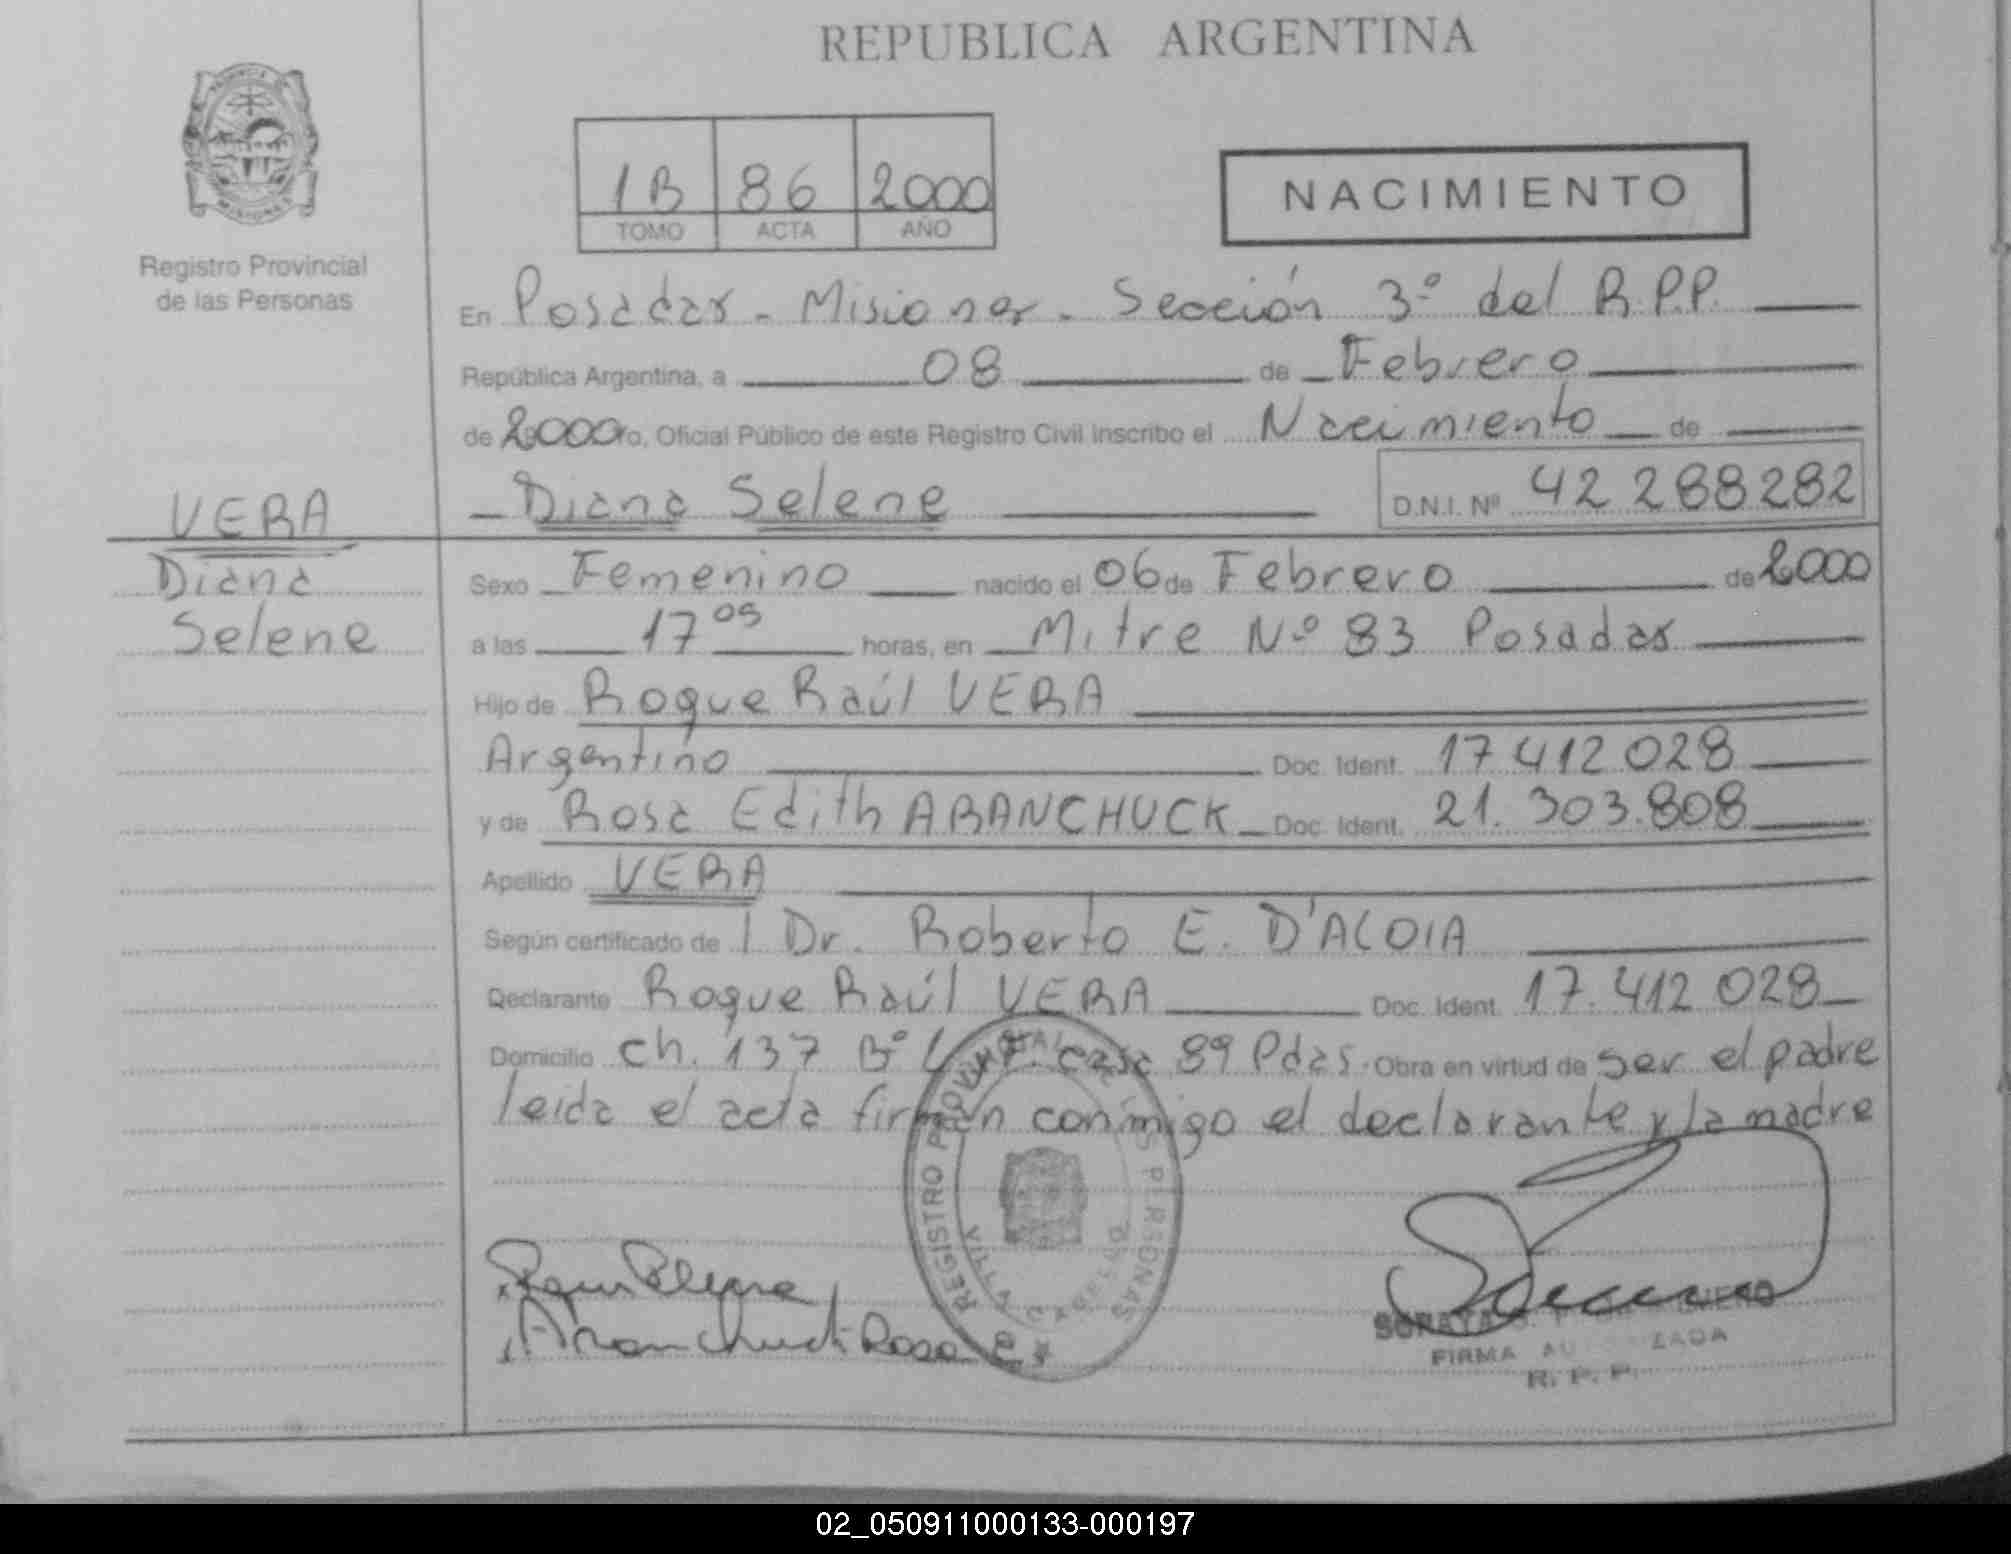 REPUBLICA ARGENTINA
PROVINCIA DE
MISIONES
Registro Provincial
de las Personas
1B 86 2000
TOMO ACTA AÑO
NACIMIENTO
En Posadas - Misiones - Sección 3º del R.P.P.
República Argentina, a 08 de Febrero
de 2000 yo, Oficial Público de este Registro Civil inscribo el Nacimiento de
Diana Selene D.N.I. Nº 42 288282
VERA
Diana
Selene
Sexo Femenino nacido el 06 de Febrero de 2000
a las 17 05 horas, en Mitre Nº 83 Posadas
Hijo de Roque Raúl VERA
Argentino Doc. Ident. 17 412 028
y de Rosa Edith ARANCHUCK Doc. Ident. 21.303.808
Apellido VERA
Según certificado de l Dr. Roberto E. D'ALOIA
Declarante Roque Raúl VERA Doc. Ident. 17.412 028
Domicilio Ch. 137 Bº casa 89 Pdas. Obra en virtud de ser el padre
leida el acta firman conmigo el declarante y la madre
REGISTRO PROVINCIAL DE LAS PERSONAS
VILLA CABELLO
Aranchuck Rosa E.
SORAYA
FIRMA AUTORIZADA
R. P. P.
02_050911000133-000197